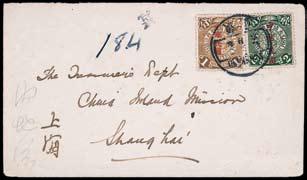 184
The Treasurer's Dept
China Inland Mission
Shanghai
上海
1
2